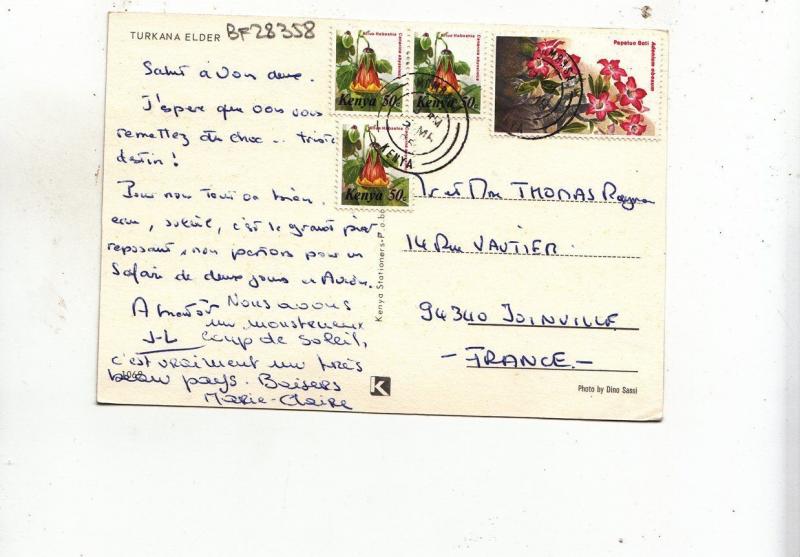 TURKANA ELDER BF28358
Salut à Vous deux.
J'espère que vous vous
remettez du choc.. triste
destin !
Pour nous tout va bien,
eau, soleil, c'est le grand pied
reposant, nous partons pour un
Safari de deux jours en Avion.
A bientôt
J-L
Nous avons
un monstrueux
coup de soleil,
c'est vraiment un très
beau pays. Baisers
Marie-Claire
Kenya Stationers
K
Kenya 50c
Kenya 50c
Kenya 50c
Papatua Bati
Adenium obesum
KENYA
Mr et Mme THOMAS
14 Rue VAUTIER
94340 JOINVILLE
- FRANCE -
Photo by Dino Sassi